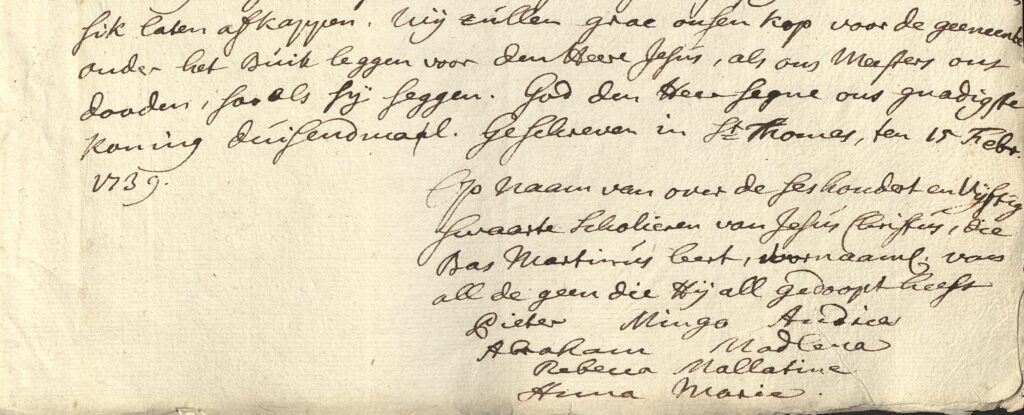 sik laten afkappen. Wij zullen grae onsen kop voor de geemeente
onder het Buik leggen voor den Heere Jesus, als ons Meesters ons
dooden, soo als sy seggen. God den Heer segne ons gnadigste
Koning duisendmael. Geschreven in St Thomas, ten 15 Febr.
1739.
Op Naam van over de ses hondert en Vijftig
swaarte Scholieren van Jesus Christus, die
Bas Martinus leert, voornaaml. van
all de geen die Hij all gedoopt heeft
Pieter Mingo Andrea
Abraham Madlena
Rebecca Mallatine
Anna Marie.